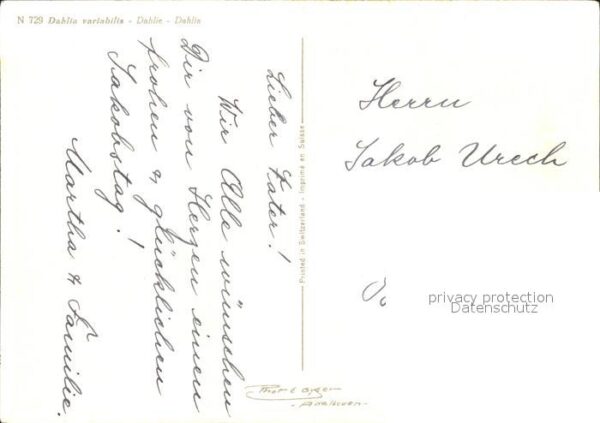 N 729 Dahlia variabilis - Dahlie - Dahlia
Lieber Vater!
Wir Alle wünschen
Dir von Herzen einen
frohen & glücklichen
Jakobstag!
Martha & Familie.
Printed in Switzerland - Imprimé en Suisse
Herrn
Jakob Urech
privacy protection
Datenschutz